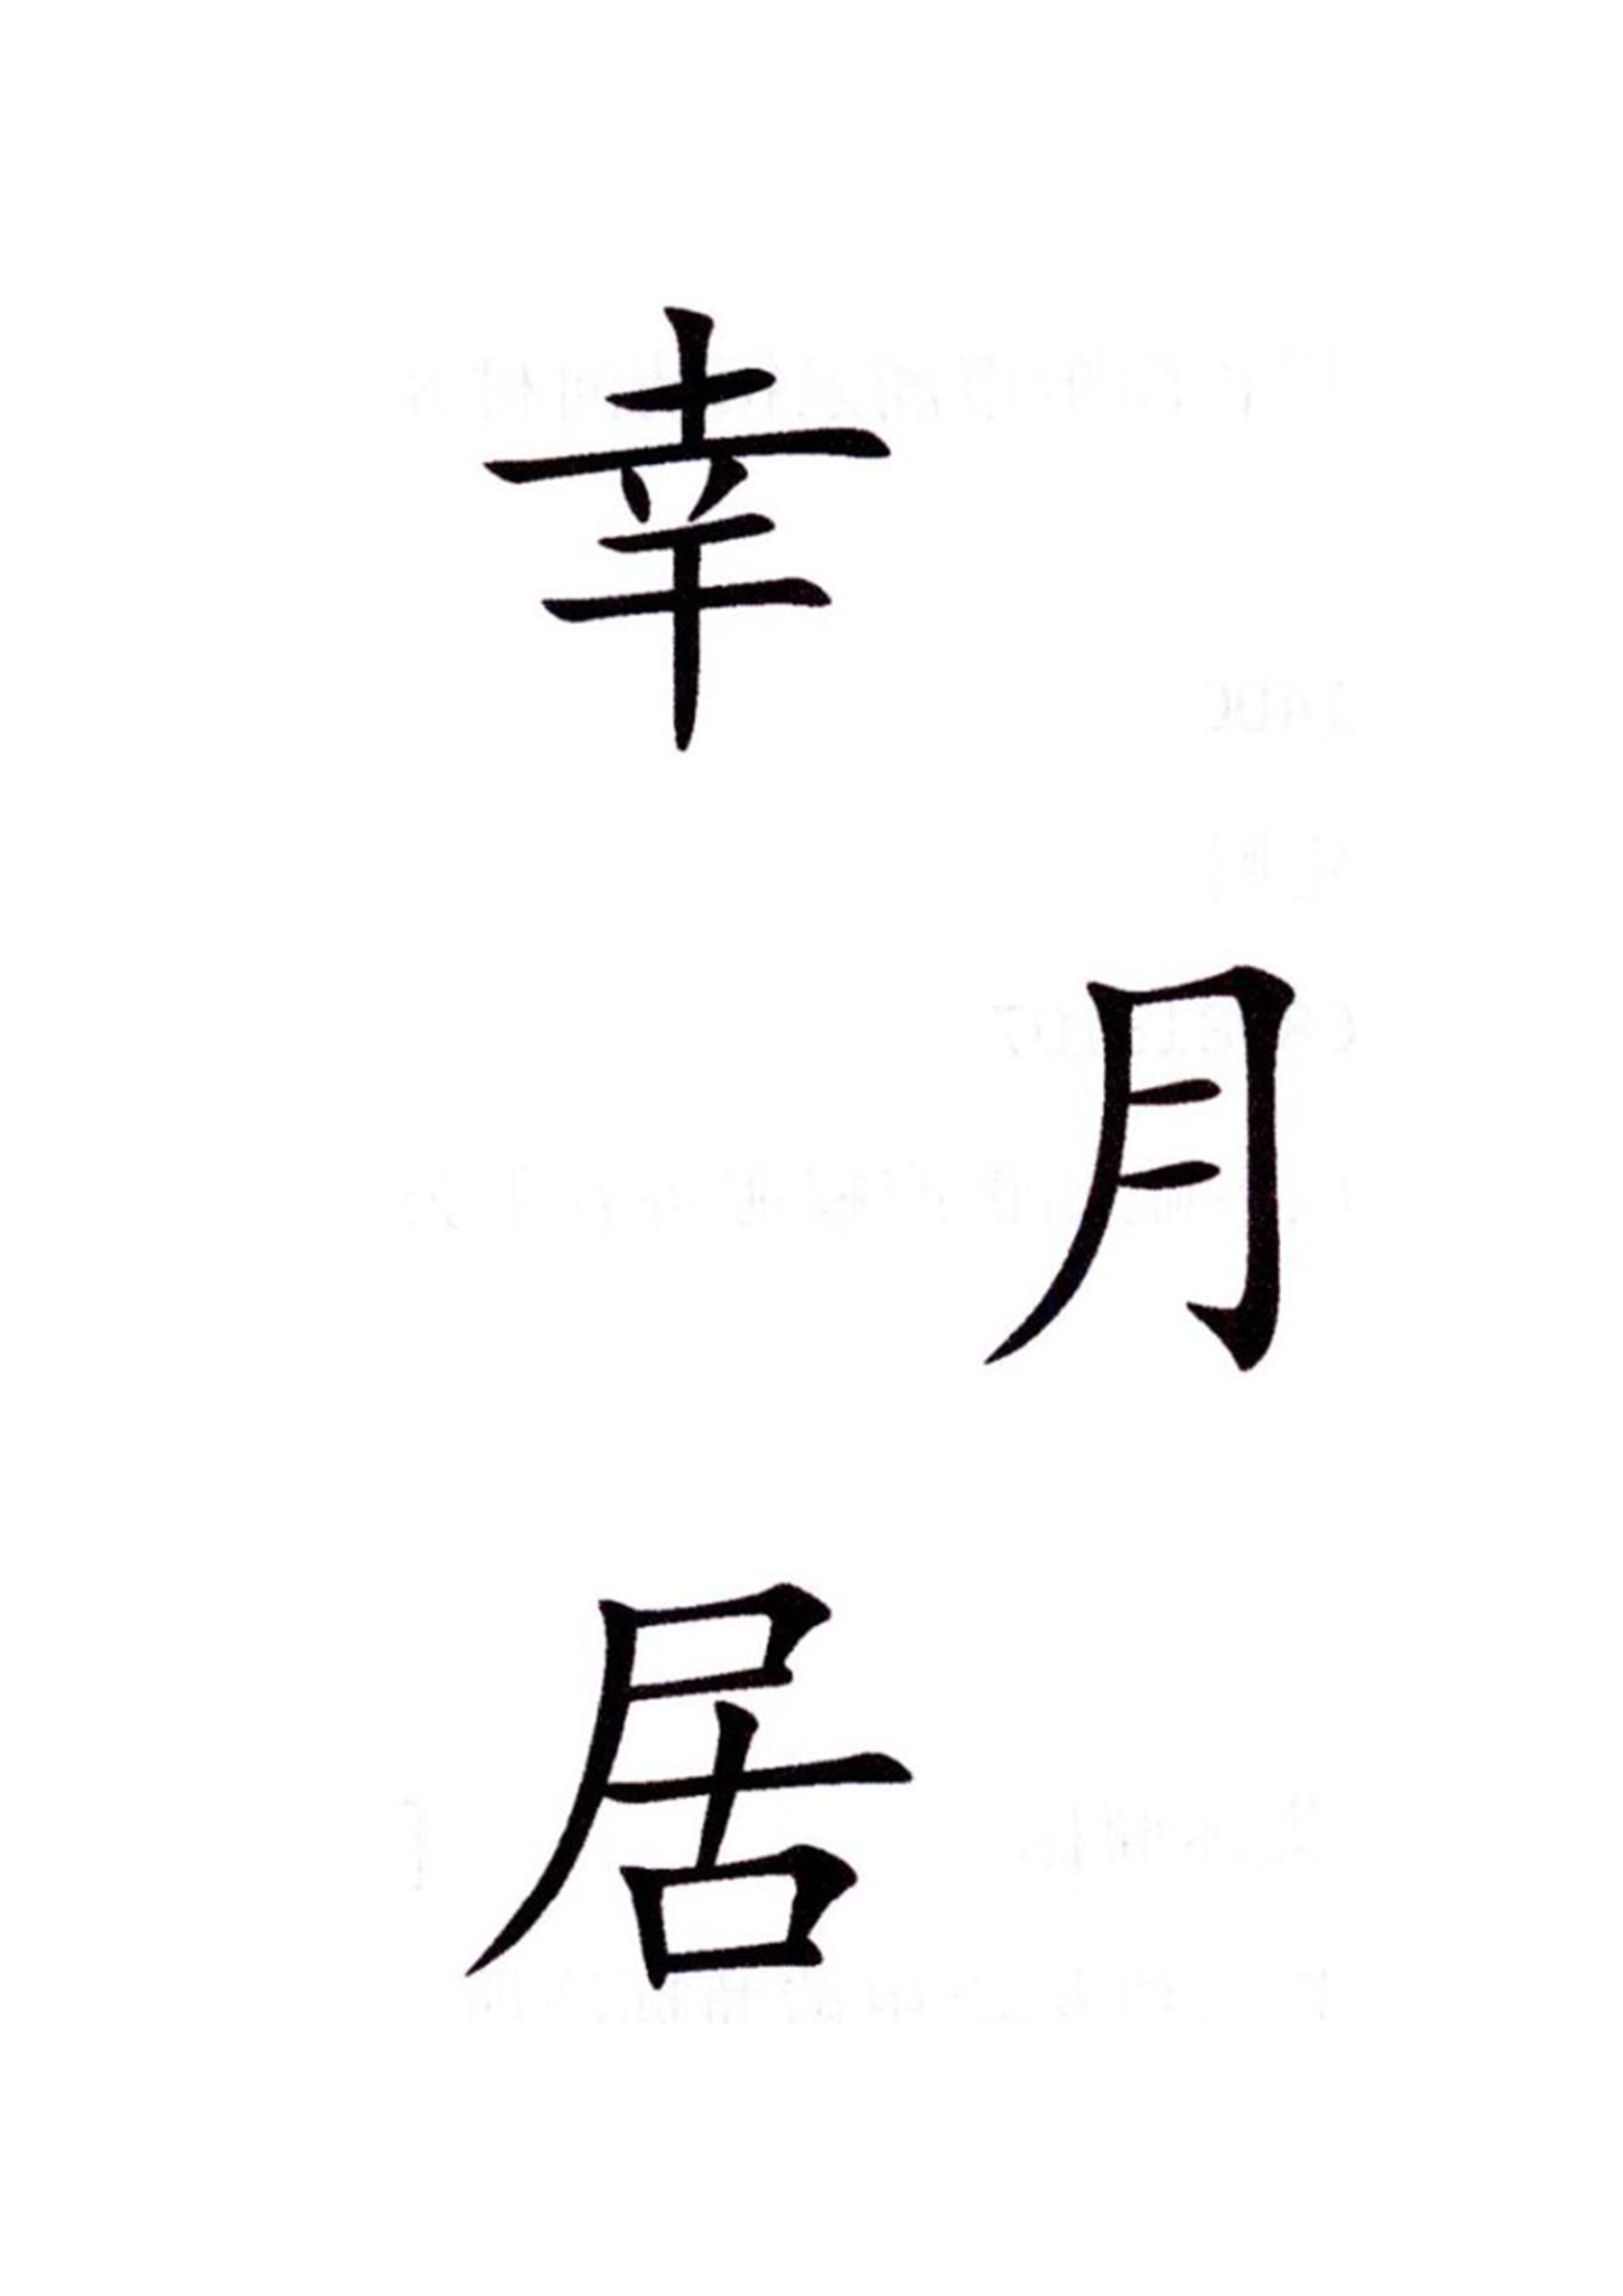 幸
月
居